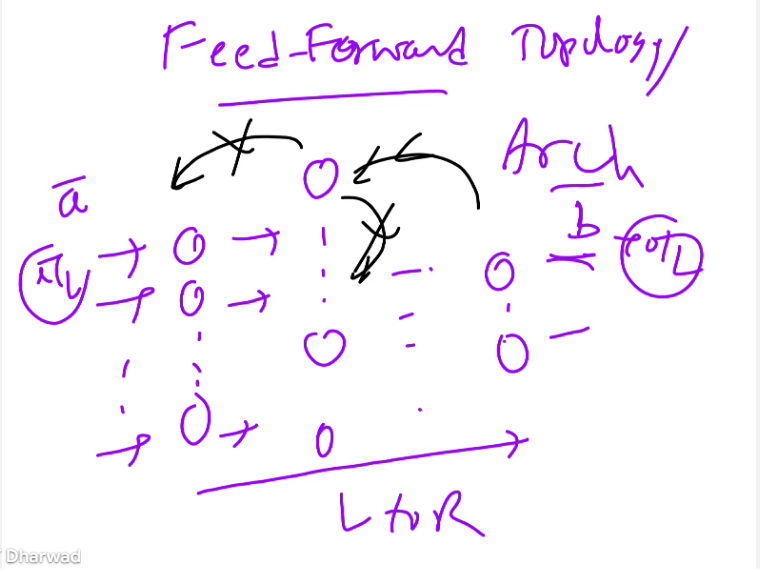 Feed-Forward Topology/
Arch
a
b
i/L
o/L
L to R
Dharwad